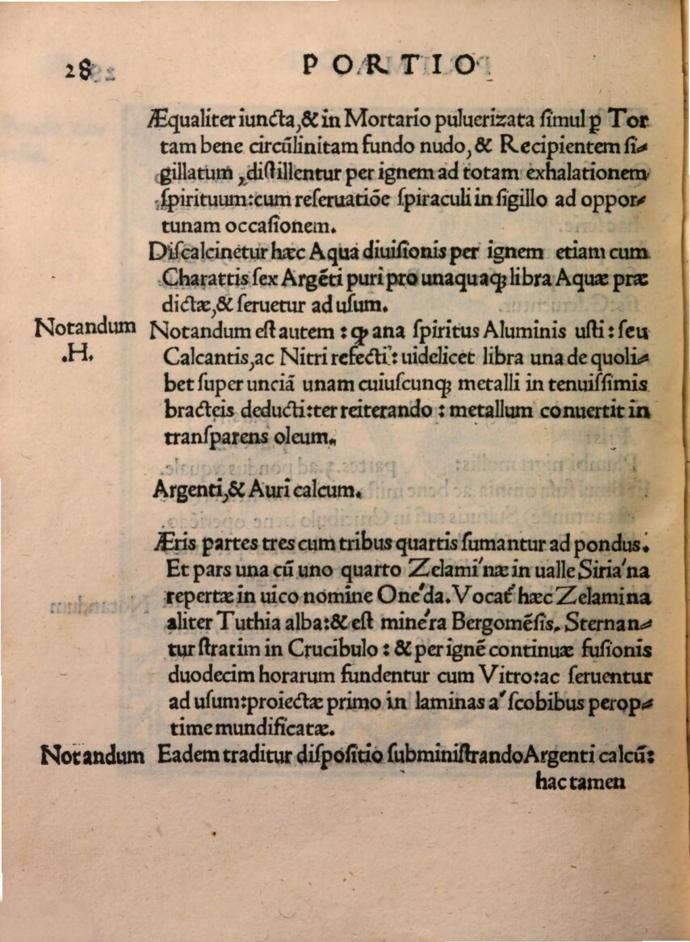 28 PORTIO
Æqualiter iuncta,& in Mortario puluerizata ſimul ꝑ Tor
tam bene circũlinitam fundo nudo,& Recipientem ſi⸗
gillatum ,diſtillentur per ignem ad totam exhalationem
ſpirituum:cum reſeruatiõe ſpiraculi in ſigillo ad oppor⸗
tunam occaſionem.
Diſcalcinetur hæc Aqua diuiſionis per ignem etiam cum
Charattis ſex Argẽti puri pro unaquaqꝫ libra Aquæ præ
dictæ,& ſeruetur ad uſum.
Notandum Notandum eſt autem : ꝙ ana ſpiritus Aluminis uſti : ſeu
.H. Calcantis,ac Nitri refecti : uidelicet libra una de quoli⸗
bet ſuper unciã unam cuiuſcunqꝫ metalli in tenuiſſimis
bracteis deducti:ter reiterando : metallum conuertit in
tranſparens oleum.
Argenti,& Auri calcum.
Æris partes tres cum tribus quartis ſumantur ad pondus.
Et pars una cũ uno quarto Zelami'næ in ualle Siria'na
repertæ in uico nomine One'da. Vocat᷑ hæc Zelamina
aliter Tuthia alba:& eſt mine'ra Bergomẽſis. Sternan⸗
tur ſtratim in Crucibulo : & per ignẽ continuæ fuſionis
duodecim horarum fundentur cum Vitro:ac ſeruentur
ad uſum:proiectæ primo in laminas a' ſcobibus perop⸗
time mundificatæ.
Notandum Eadem traditur diſpoſitio ſubminiſtrando Argenti calcũ:
hac tamen